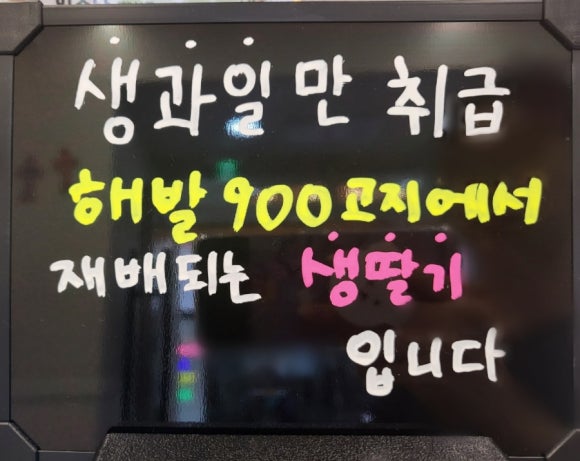 생과일만 취급
해발 900고지에서
재배되는 생딸기
입니다